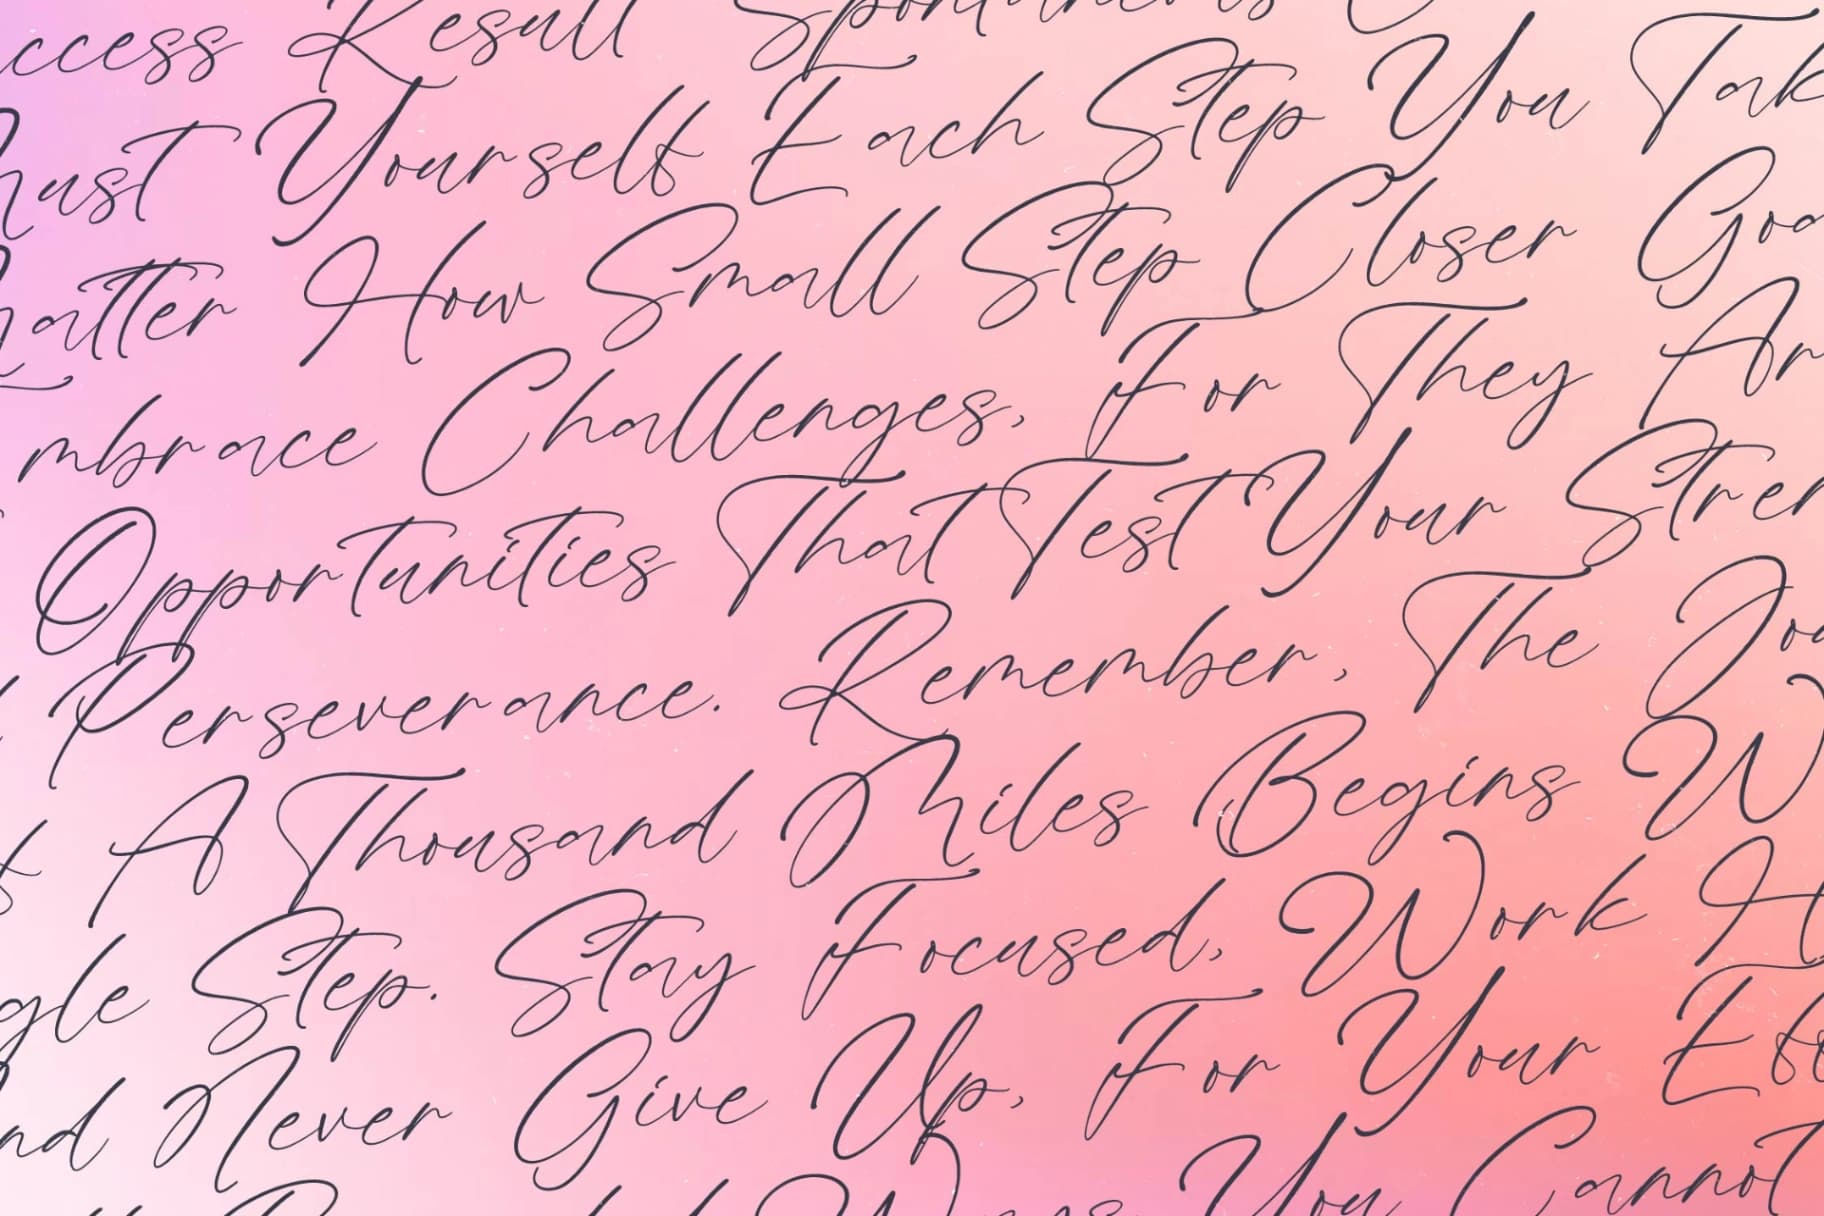 ccess Result Spontaneous
Trust Yourself Each Step You Tak
Matter How Small Step Closer Goa
mbrace Challenges, For They Ar
Opportunities That Test Your Stren
d Perseverance. Remember, The Jou
f A Thousand Miles Begins W
gle Step. Stay Focused, Work H
nd Never Give Up, For Your Eff
You Cannot